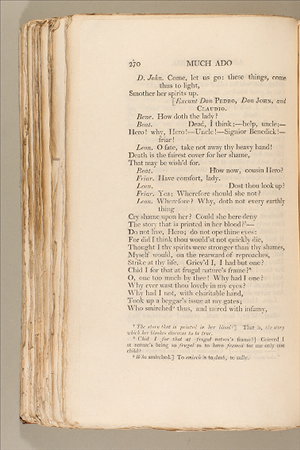 270 MUCH ADO
D. John. Come, let us go: these things, come
thus to light,
Smother her spirits up.
[Exeunt Don PEDRO, Don JOHN, and
CLAUDIO.
Bene. How doth the lady?
Beat. Dead, I think;—help, uncle;—
Hero! why, Hero!—Uncle!—Signior Benedick!—
friar!
Leon. O fate, take not away thy heavy hand!
Death is the fairest cover for her shame,
That may be wish'd for.
Beat. How now, cousin Hero?
Friar. Have comfort, lady.
Leon. Dost thou look up?
Friar. Yea; Wherefore should she not?
Leon. Wherefore? Why, doth not every earthly
thing
Cry shame upon her? Could she here deny
The story that is printed in her blood?—
Do not live, Hero; do not ope thine eyes:
For did I think thou would'st not quickly die,
Thought I thy spirits were stronger than thy shames,
Myself would, on the rearward of reproaches,
Strike at thy life. Griev'd I, I had but one?
Chid I for that at frugal nature's frame?
O, one too much by thee! Why had I one?
Why ever wast thou lovely in my eyes?
Why had I not, with charitable hand,
Took up a beggar's issue at my gates;
Who smirched thus, and mired with infamy,
The story that is printed in her blood?] That is, the story
which her blushes discover to be true.
Chid I for that at frugal nature's frame?] Grieved I
at nature's being so frugal as to have framed for me only one
child?
Who smirched] To smirch is to daub, to sully.